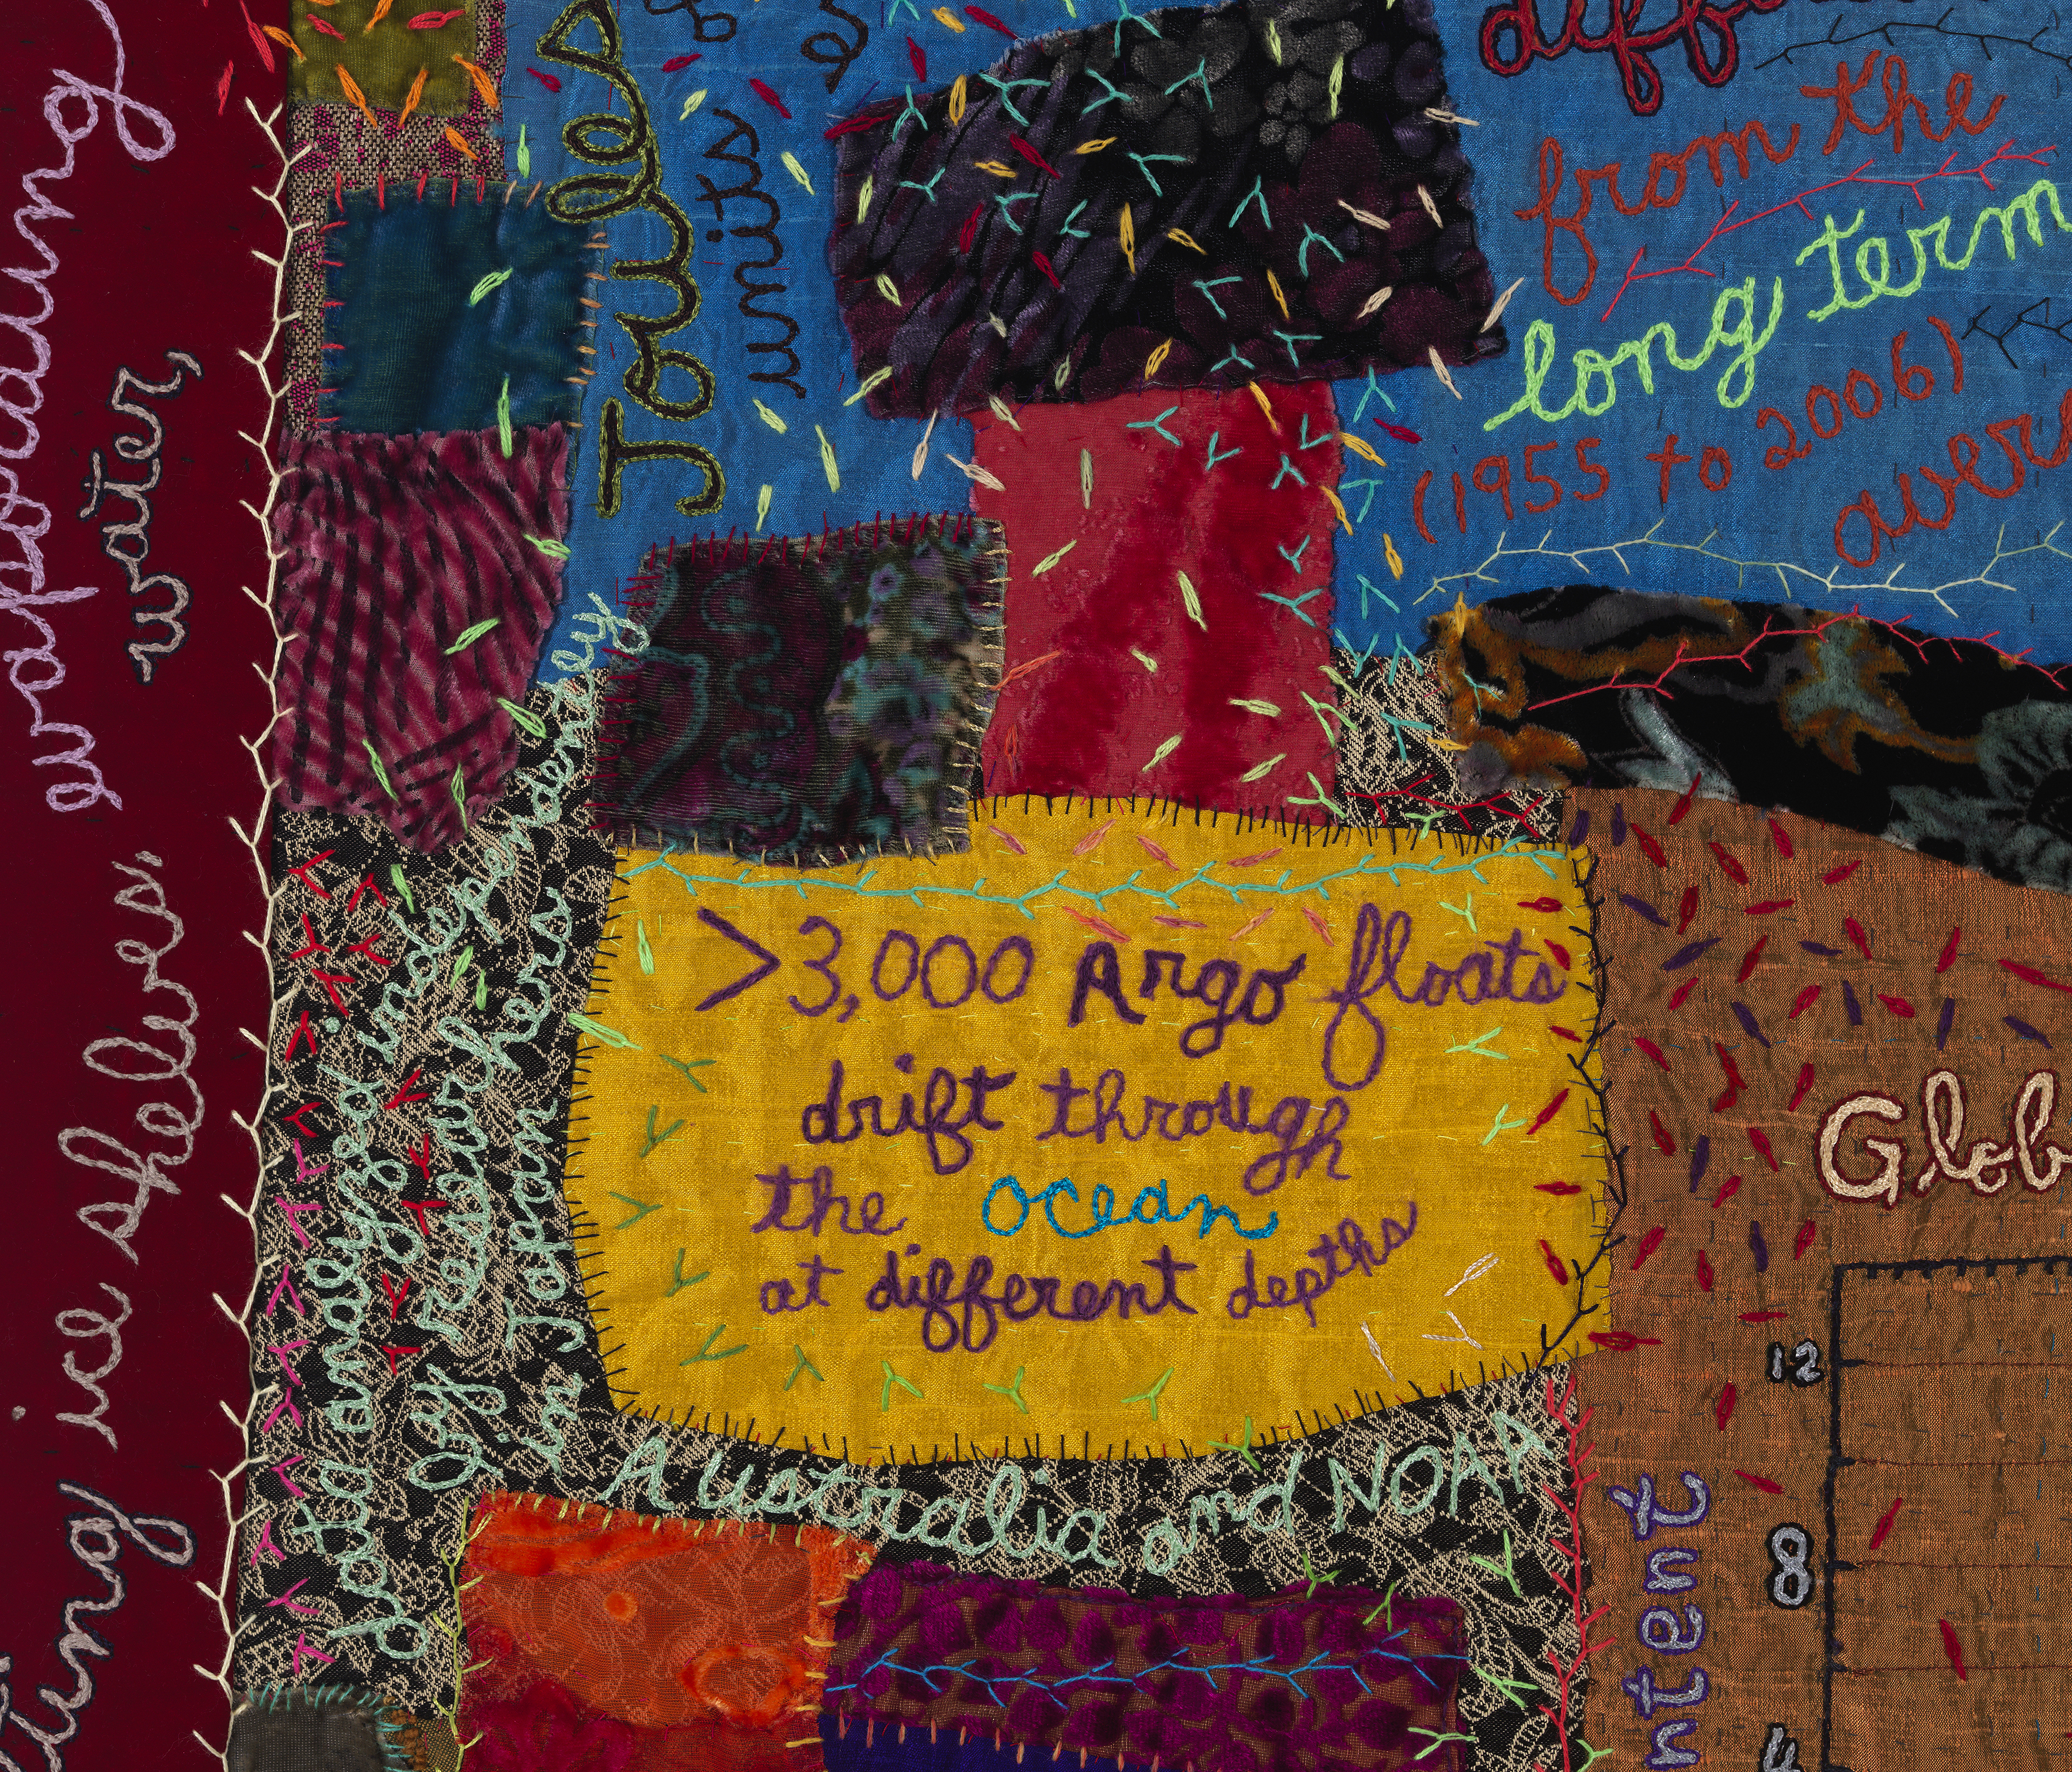 evaporating
water,
ting ice shelves,
Joules
units
from the
long term
(1955 to 2006)
over
data analyzed independendly
by researchers
in Japan
Australia and NOAA
>3,000 Argo floats
drift through
the ocean
at different depths
Glob
ntent
12
8
4